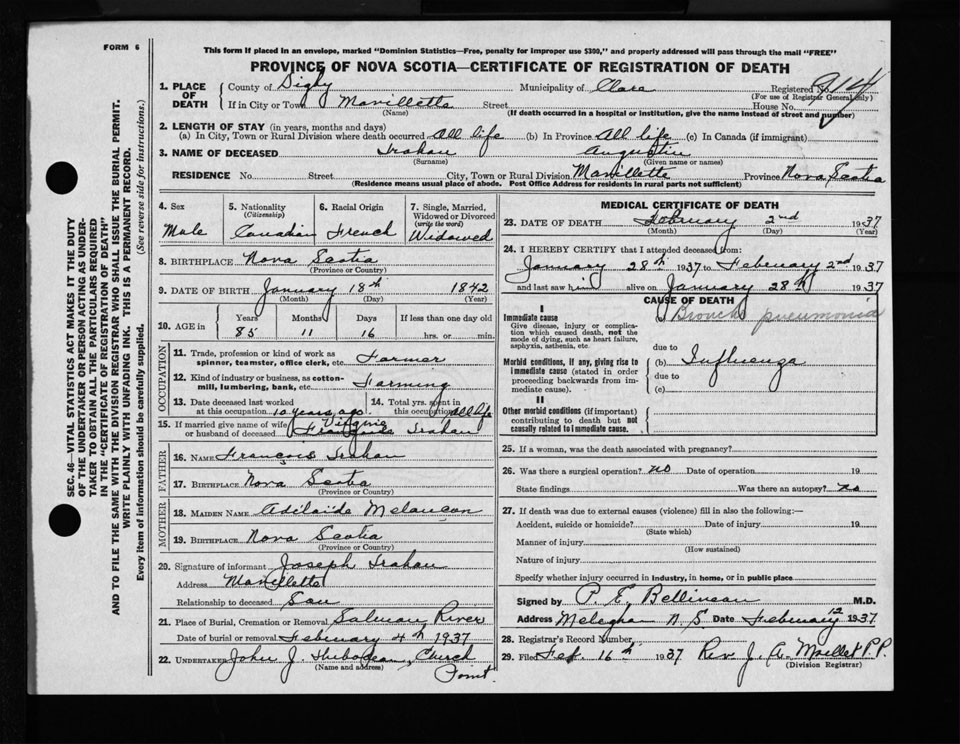 FORM 6
This form if placed in an envelope, marked "Dominion Statistics—Free, penalty for improper use $300," and properly addressed will pass through the mail "FREE"
PROVINCE OF NOVA SCOTIA—CERTIFICATE OF REGISTRATION OF DEATH
SEC. 46—VITAL STATISTICS ACT MAKES IT THE DUTY
OF THE UNDERTAKER OR PERSON ACTING AS UNDER-
TAKER TO OBTAIN ALL THE PARTICULARS REQUIRED
IN THE "CERTIFICATE OF REGISTRATION OF DEATH"
AND TO FILE THE SAME WITH THE DIVISION REGISTRAR WHO SHALL ISSUE THE BURIAL PERMIT.
WRITE PLAINLY WITH UNFADING INK. THIS IS A PERMANENT RECORD.
Every item of information should be carefully supplied. (See reverse side for instructions.)
1. PLACE OF DEATH County of Digby Municipality of Clare Registered No. 914
(For use of Registrar General only)
If in City or Town Mavillette Street House No.
(Name) (If death occurred in a hospital or institution, give the name instead of street and number)
2. LENGTH OF STAY (in years, months and days)
(a) In City, Town or Rural Division where death occurred All life (b) In Province All life (c) In Canada (if immigrant)
3. NAME OF DECEASED Trahan Augustin
(Surname) (Given name or names)
RESIDENCE No. Street City, Town or Rural Division Mavillette Province Nova Scotia
(Residence means usual place of abode. Post Office Address for residents in rural parts not sufficient)
4. Sex Male
5. Nationality (Citizenship) Canadian
6. Racial Origin French
7. Single, Married, Widowed or Divorced (write the word) Widowed
8. BIRTHPLACE Nova Scotia
(Province or Country)
9. DATE OF BIRTH January 18th 1842
(Month) (Day) (Year)
10. AGE in Years Months Days If less than one day old
85 11 16 hrs. or min.
OCCUPATION
11. Trade, profession or kind of work as spinner, teamster, office clerk, etc. Farmer
12. Kind of industry or business, as cotton-mill, lumbering, bank, etc. Farming
13. Date deceased last worked at this occupation 10 years ago 14. Total yrs. spent in this occupation all life
15. If married give name of wife or husband of deceased Virginie Trahan
FATHER
16. NAME François Trahan
17. BIRTHPLACE Nova Scotia
(Province or Country)
MOTHER
18. MAIDEN NAME Adilaïde Melançon
19. BIRTHPLACE Nova Scotia
(Province or Country)
20. Signature of informant Joseph Trahan
Address Mavillette
Relationship to deceased Son
21. Place of Burial, Cremation or Removal Salmon River
Date of burial or removal February 4th 1937
22. UNDERTAKER John J. Thibodeau, Church Point
(Name and address)
MEDICAL CERTIFICATE OF DEATH
23. DATE OF DEATH February 2nd 1937
(Month) (Day) (Year)
24. I HEREBY CERTIFY that I attended deceased from:
January 28th 1937 to February 2nd 1937
and last saw him alive on January 28th 1937
CAUSE OF DEATH
I
Immediate cause (a) Broncho pneumonia
Give disease, injury or complication which caused death, not the mode of dying, such as heart failure, asphyxia, asthenia, etc.
due to
Morbid conditions, if any, giving rise to immediate cause (stated in order proceeding backwards from immediate cause).
(b) Influenza
due to
(c)
II
Other morbid conditions (if important) contributing to death but not causally related to immediate cause.
25. If a woman, was the death associated with pregnancy?
26. Was there a surgical operation? no Date of operation 19
State findings Was there an autopsy? no
27. If death was due to external causes (violence) fill in also the following:—
Accident, suicide or homicide? Date of injury 19
(State which)
Manner of injury
(How sustained)
Nature of injury
Specify whether injury occurred in industry, in home, or in public place
Signed by P. E. Belliveau M.D.
Address Meteghan N.S Date February 12 1937
28. Registrar's Record Number
29. Filed Feb. 16th 1937 Rev. J. A. P.P.
(Division Registrar)